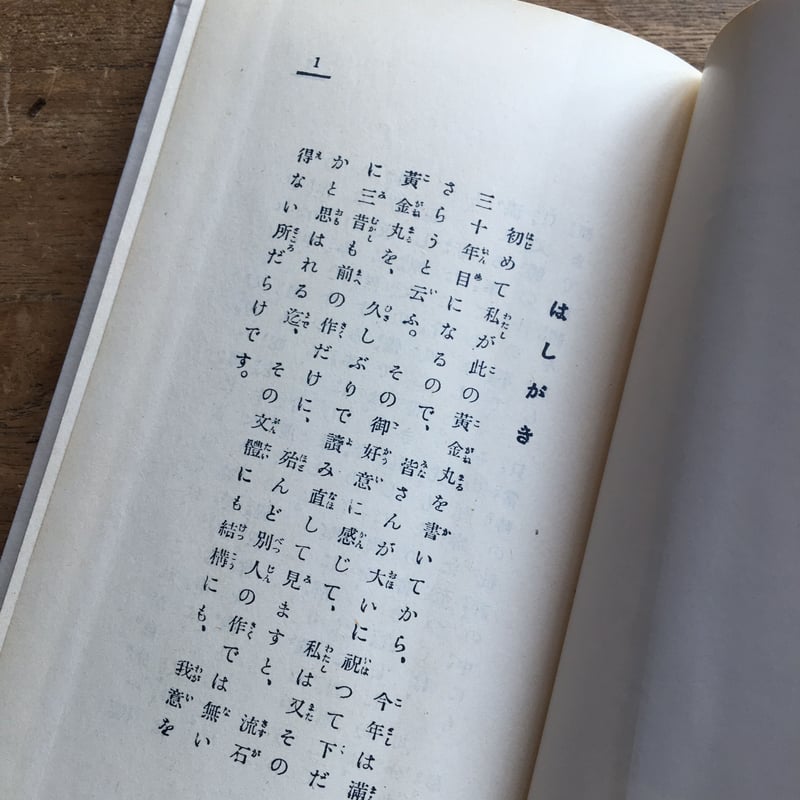 1
はしがき
初めて私が此の黄金丸を書いてから、今年は滿
三十年目になるので、皆さんが大いに祝つて下だ
さらうと云ふ。その御好意に感じて、私は又その
黄金丸を、久しぶりで讀み直して見ますと、流石
に三昔も前の作だけに、殆んど別人の作では無い
かと思はれる迄、その文體にも結構にも、我意を
得ない所だらけです。